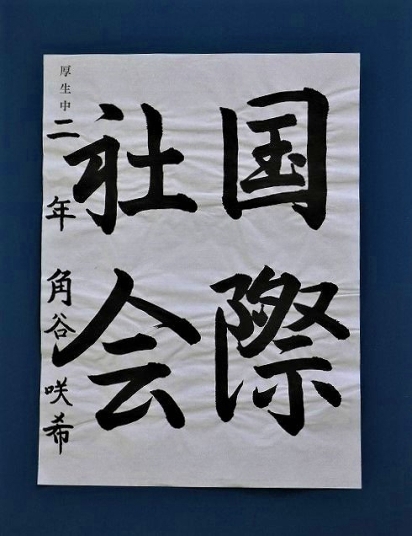 国際
社会
厚生中
二年 角谷咲希